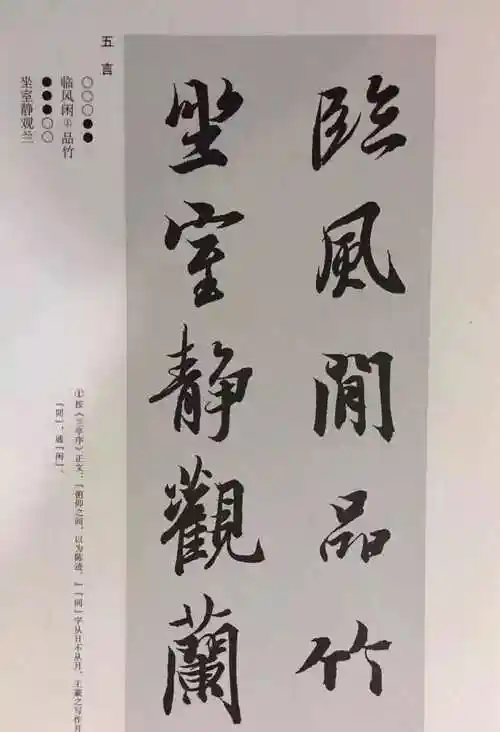 臨風閒品竹
坐室靜觀蘭
五言
○○○●●
临风闲①品竹
●●●○○
坐室静观兰
①按《兰亭序》正文：“俯仰之间，以为陈迹。”“间”字从日不从月，王羲之写作月
“閒”，通“闲”。